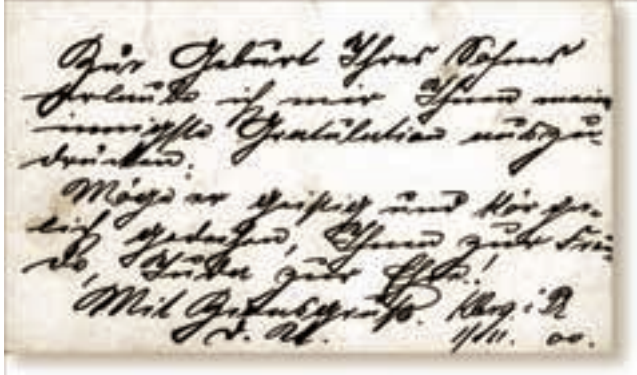 Zur Geburt Ihres Sohnes
erlaube ich mir Ihnen mein
innigste Gratulation auszu-
drücken.
Möge er geistig und körper-
lich gedeihen, Ihnen zur Freu-
de, Juda zur Ehre!
Mit Zionsgruß.